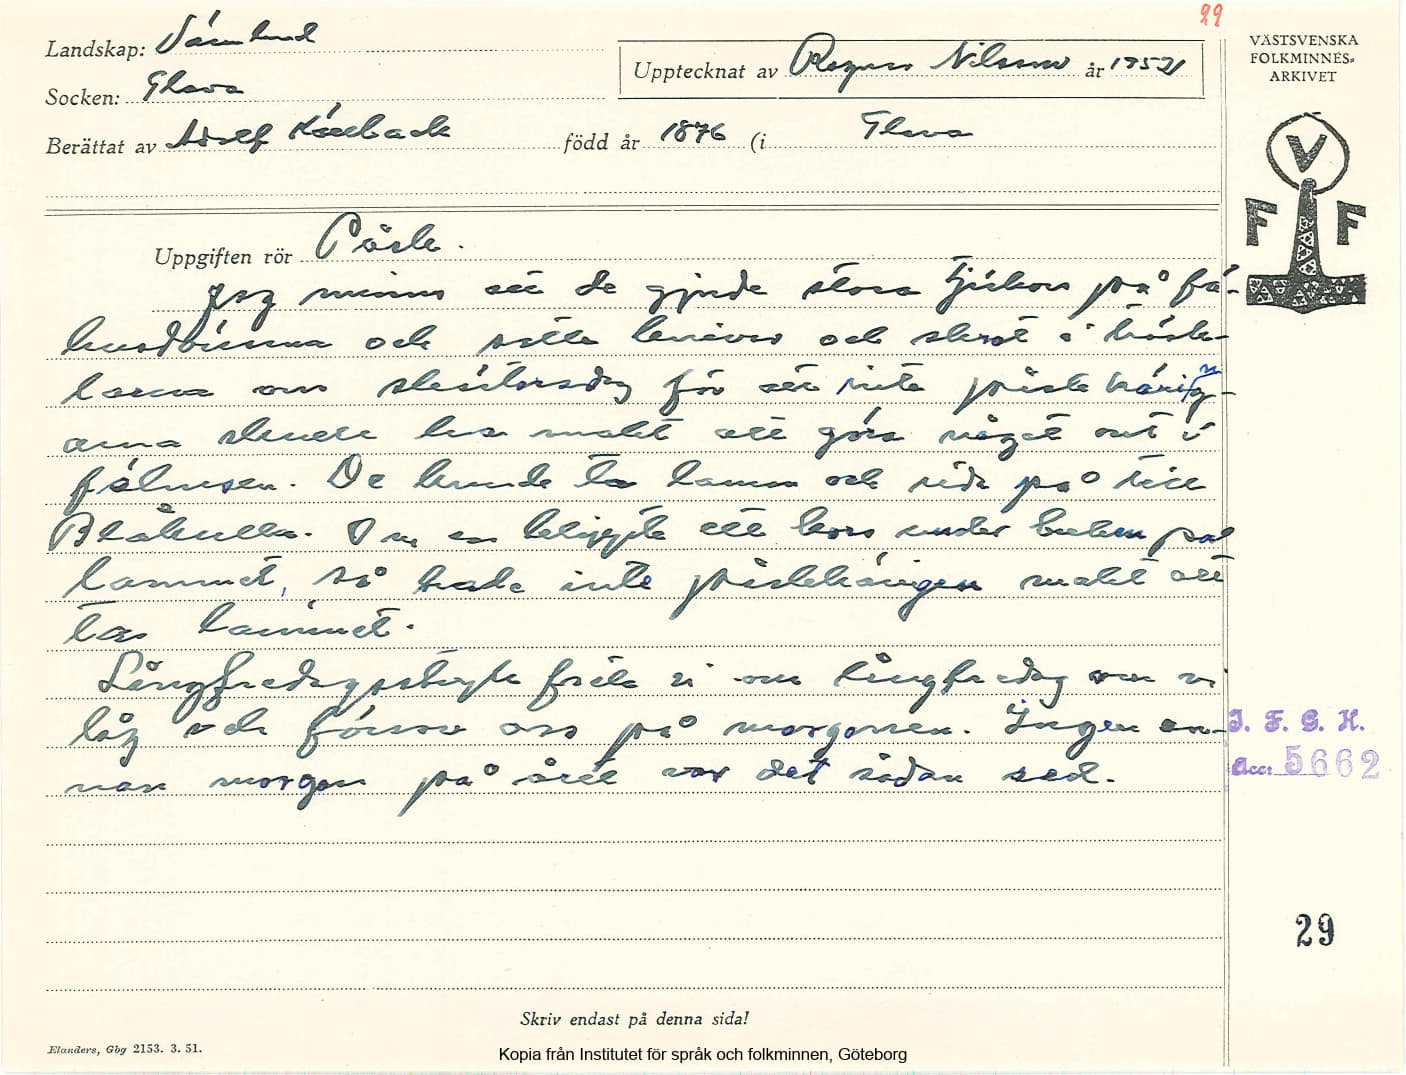 29
Landskap: Värmland
Upptecknat av Ragnar Nilsson år 1952
VÄSTSVENSKA
FOLKMINNES-
ARKIVET
Socken: Glava
Berättat av Adolf född år 1876 (i Glava
V
F F
Uppgiften rör Påsk.
Jag minns att de gjorde stora tjärkors på fä-
husdörrarna och satte knivar och skrot i trösk-
larna om skärtorsdag för att inte påskkäring-
arna skulle ha makt att göra något ont i
fähusen. De kunde ta lamm och rida på till
Blåkulla. Om en klippte ett kors under buken på
lammet, så hade inte påskkäringen makt att
ta lammet.
Långfredagsstryk fick vi om långfredag om vi
låg och försov oss på morgonen. Ingen an-
nan morgon på året var det sådan sed.
I. F. G. H.
Acc: 5662
29
Skriv endast på denna sida!
Elanders, Gbg 2153. 3. 51.
Kopia från Institutet för språk och folkminnen, Göteborg